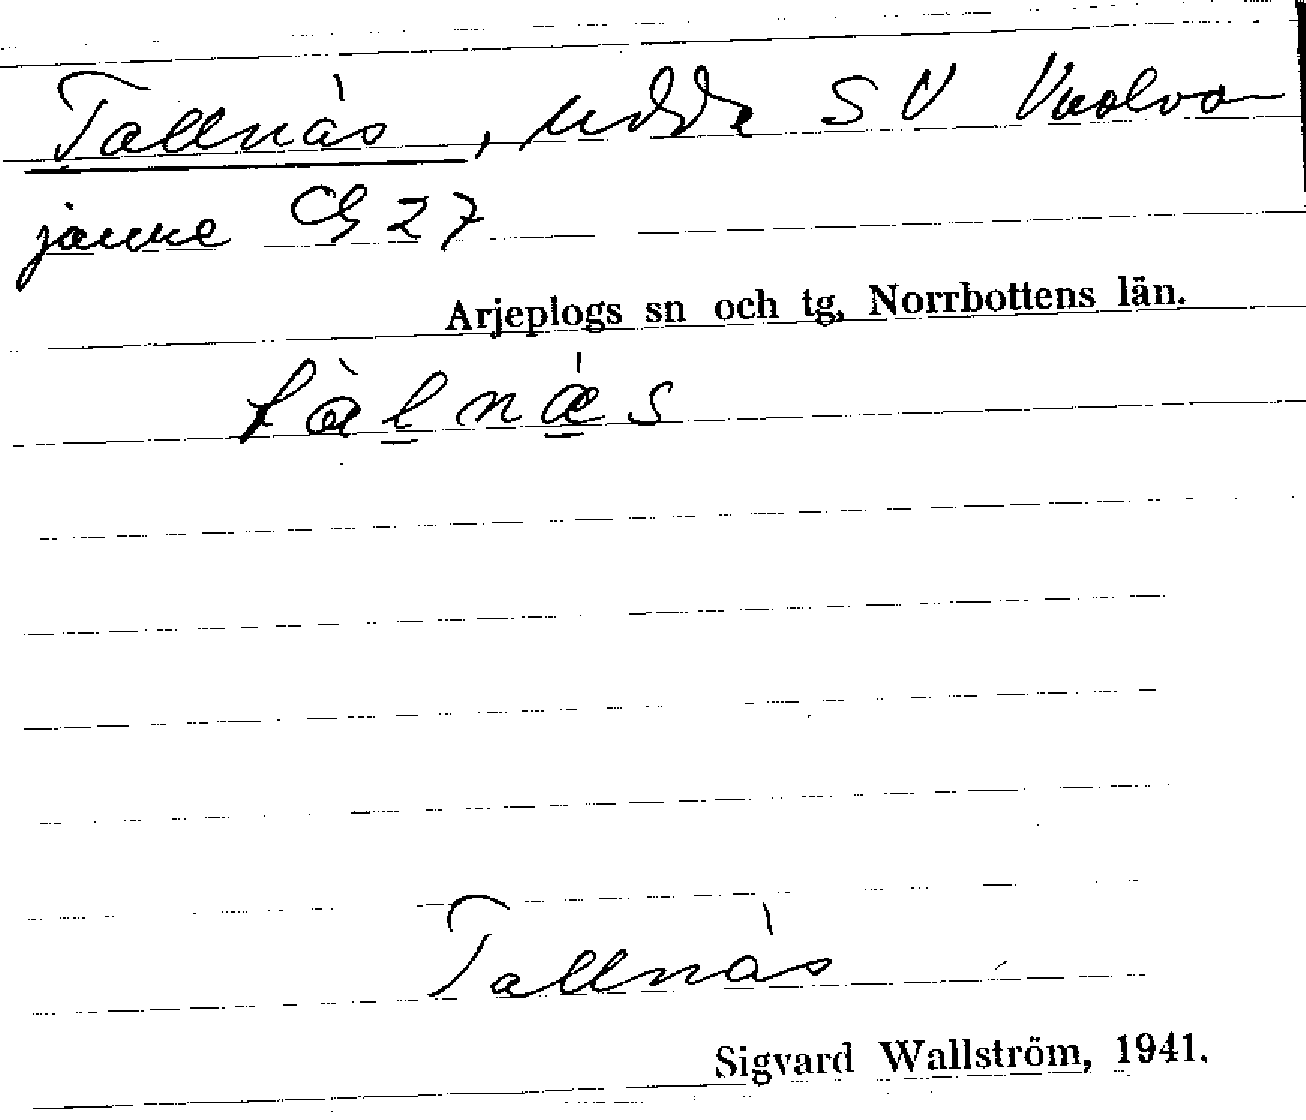 Tallnäs, udde SV Vuolvo-
jaure C9 27
Arjeplogs sn och tg, Norrbottens län.
tàlnǽs
Tallnäs
Sigvard Wallström, 1941.